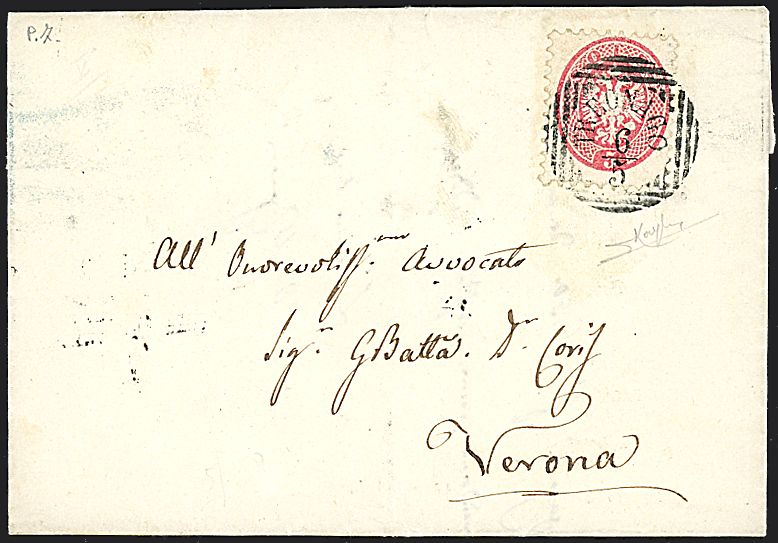 P.7.
6
5
All' Onorevoliss.mo Avvocato
Sig.r GBatta. Dr.
Verona